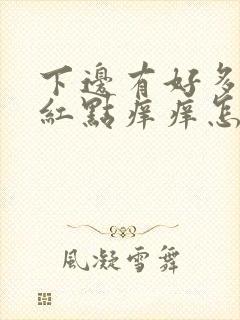 下邊有好多
紅點痒痒怎
風凝雪舞